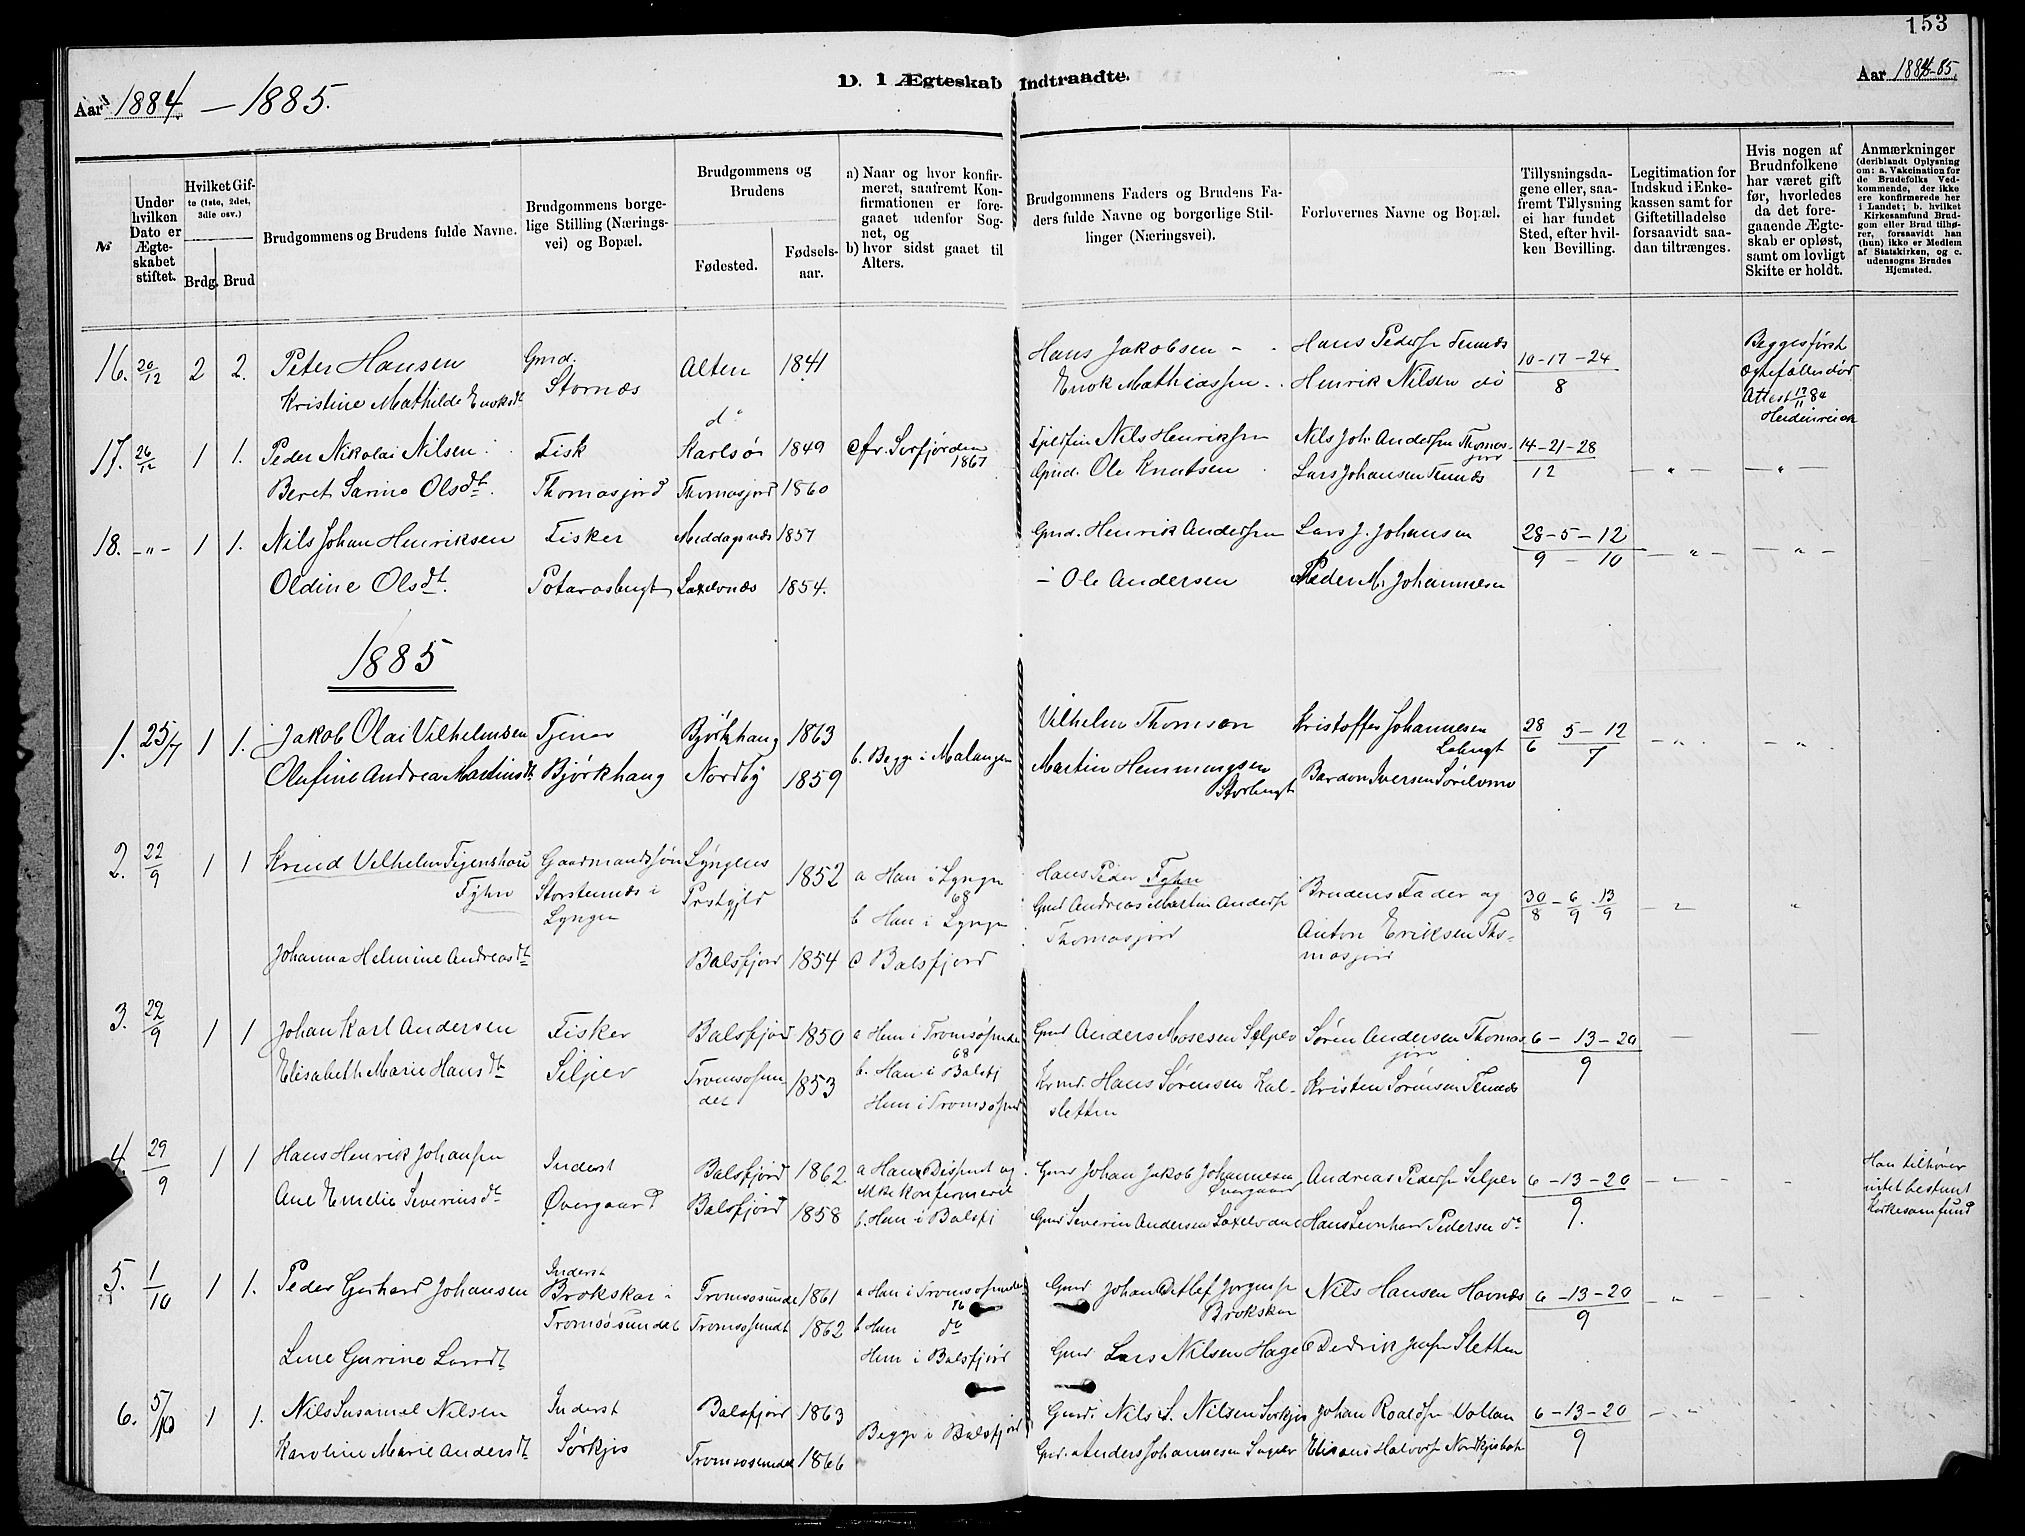 153
D. I Ægteskab Indtraadte.
Aar 1884 — 1885.
Aar 1884-85.
№
Under hvilken Dato er Ægteskabet stiftet.
Hvilket Gifte (1ste, 2det, 3die osv.)
Brdg. Brud
Brudgommens og Brudens fulde Navne.
Brudgommens borgelige Stilling (Næringsvei) og Bopæl.
Brudgommens og Brudens
Fødested.
Fødselsaar.
a) Naar og hvor konfirmeret, saafremt Konfirmationen er foregaaet udenfor Sognet, og
b) hvor sidst gaaet til Alters.
Brudgommens Faders og Brudens Faders fulde Navne og borgerlige Stillinger (Næringsvei).
Forlovernes Navne og Bopæl.
Tillysningsdagene eller, saafremt Tillysning ei har fundet Sted, efter hvilken Bevilling.
Legitimation for Indskud i Enkekassen samt for Giftetilladelse forsaavidt saadan tiltrænges.
Hvis nogen af Brudnfolkene har været gift før, hvorledes da det foregaaende Ægteskab er opløst, samt om lovligt Skifte er holdt.
Anmærkninger (deriblandt Oplysning om: a. Vakcination for de Brudefolks Vedkommende, der ikke ere konfirmerede her i Landet; b. hvilket Kirkesamfund Brudgom eller Brud tilhører, forsaavidt han (hun) ikke er Medlem af Statskirken, og c. udensogns Brudes Hjemsted.
16. 20/12 2 2. Peter Hansen Gmd. Alten 1841 Hans Jakobsen Hans Peders. 10-17-24 Begges først
Kristine Mathilde Enoksdt Stornæs Enok Mathiassen Henrik Nilsen do 8 ægtefæller død
Attest 17/11 84
d° Heidenreich
17. 26/12 1 1. Peder Nikolai Nilsen Fisk Karlsø 1849 Nils Henriksen Nils Joh. Andersen Thomasjord 14-21-28
1867
Beret Sarine Olsdt. Thomasjord Thomasjord 1860 Gmd. Ole Knutsen Lars Johansen 12 — " — — " —
18. — " — 1 1. Nils Johan Henriksen Fisker Middagsnæs 1857 Gmd. Henrik Andersen Lars J. Johansen 28-5-12
Oldine Olsdt. Laxelvnæs 1854. - Ole Andersen Peder M. Johannesen 9 — 10 — " — — " —
1885
1. 25/7 1 1. Jakob Olai Vilhelmsen Tjener Bjørkhaug 1863 b. Begge i Malangen Vilhelm Thomsen Kristoffer Johannesen 28/6 5-12 — " — — " —
Olufine Andrea Martinsdt. Bjørkhaug Nordby 1859 Martin Hemmingsen Storbugt Bardon Iversen 7
2. 22/9 1 1 Knud Vilhelm Figenshou Gaardmandssøn Lyngens 1852 a Han i Lyngen Hans Peder Fyhn Brudens Fader og 30/8 - 6/9 - 13/9
Fyhn Storstennæs i Prstgjld 68 Gmd Andreas Martin Anders.
Lyngen b Han i Lyngen Thomasjord Anton Eriksen Thomasjord
Johanna Helmine Andreasdt Balsfjord 1854 Balsfjord
3. 22/9 1 1 Johan Karl Andersen Fisker Balsfjord 1850 a Hun i Tromsøsundet Gmd Anders Mosesen Seljelv Søren Andersen Thomasjord 6-13-20
Elisabeth Marie Hansdt Seljelv Tromsøsundet 1853 68 Hans Sørensen Kalsletten Kristen Sørensen 9
b. Han i Balsfj
Hun i Tromsøsund
4. 29/9 1 1 Hans Henrik Johansen Inderst Balsfjord 1862 a Han Dissent og Gmd Johan Jakob Johannesen Andreas Peders. Seljelv 6-13-20 Han tilhører
Ane Emelie Severinsdt Øvergaard Balsfjord 1858 ikke konfirmeret Øvergaard 9. intet bestemt
b. Hun i Balsfj Gmd Severin Andersen Hans Leonhard Pedersen d° Kirkesamfund
5. 1/10 1 1. Peder Gerhard Johansen Inderst Tromsøsundet 1861 a Han i Tromsøsundet Gmd Johan Detlef Jørgens. Nils Hansen Havnæs 6-13-20
Brokskar i Tromsøsundet Tromsøsundt 1862 76 Brokskar 9
b Han d°
Lene Gurine Larsdt Hun i Balsfjord Gmd Lars Nilsen Hage Dedrik Jens. Sletten
6. 5/10 1 1. Nils Susamel Nilsen Inderst Balsfjord 1863 Begge i Balsfjord Gmd. Nils S. Nilsen Sørkjos Johan Roalds. Vollan 6-13-20
Karoline Marie Andersdt. Sørkjos Tromsøsundet 1866 Gmd. Anders Johannesen Halvors. 9